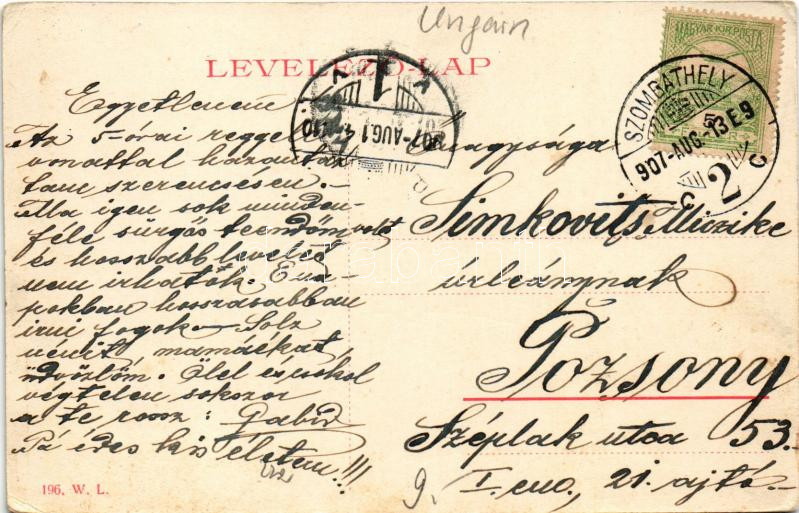 Ungarn
LEVELEZŐ-LAP
MAGYAR KIR. POSTA
SZOMBATHELY
907-AUG.-13 E9
2
C C
1
907-AUG.1
Egyetlenem
Az 5 órai reggeli
vonattal hazautaz
tam szerencsésen.-
Ma igen sok minden-
féle sürgős teendőm volt
és hosszabb levelet
nem irhatok. E na-
pokban hosszasabban
irni fogok - Solz
nénit, mamáékat
üdvözlöm. Ölel és csókol
végtelen sokszor
a te rossz: Gabid
Pá édes kis életem!!!
Nagysága
Simkovits Miczike
úrleánynak
Pozsony
Széplak utca 53.
I. em., 21. ajtó.
9.
196. W. L.